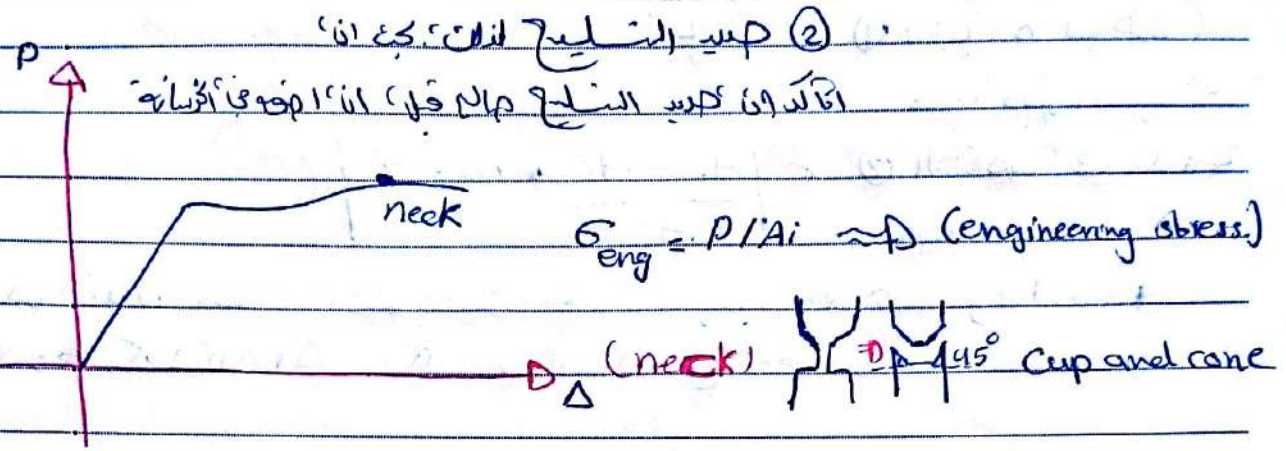 ② حديد التسليح لذلك يجب ان
اتأكد من حديد التسليح صالح قبل ان اضعه في الخرسانة
P
neck
σeng = P/Ai ⇝ (engineering stress)
Δ (neck) ⇒ 45° Cup and cone